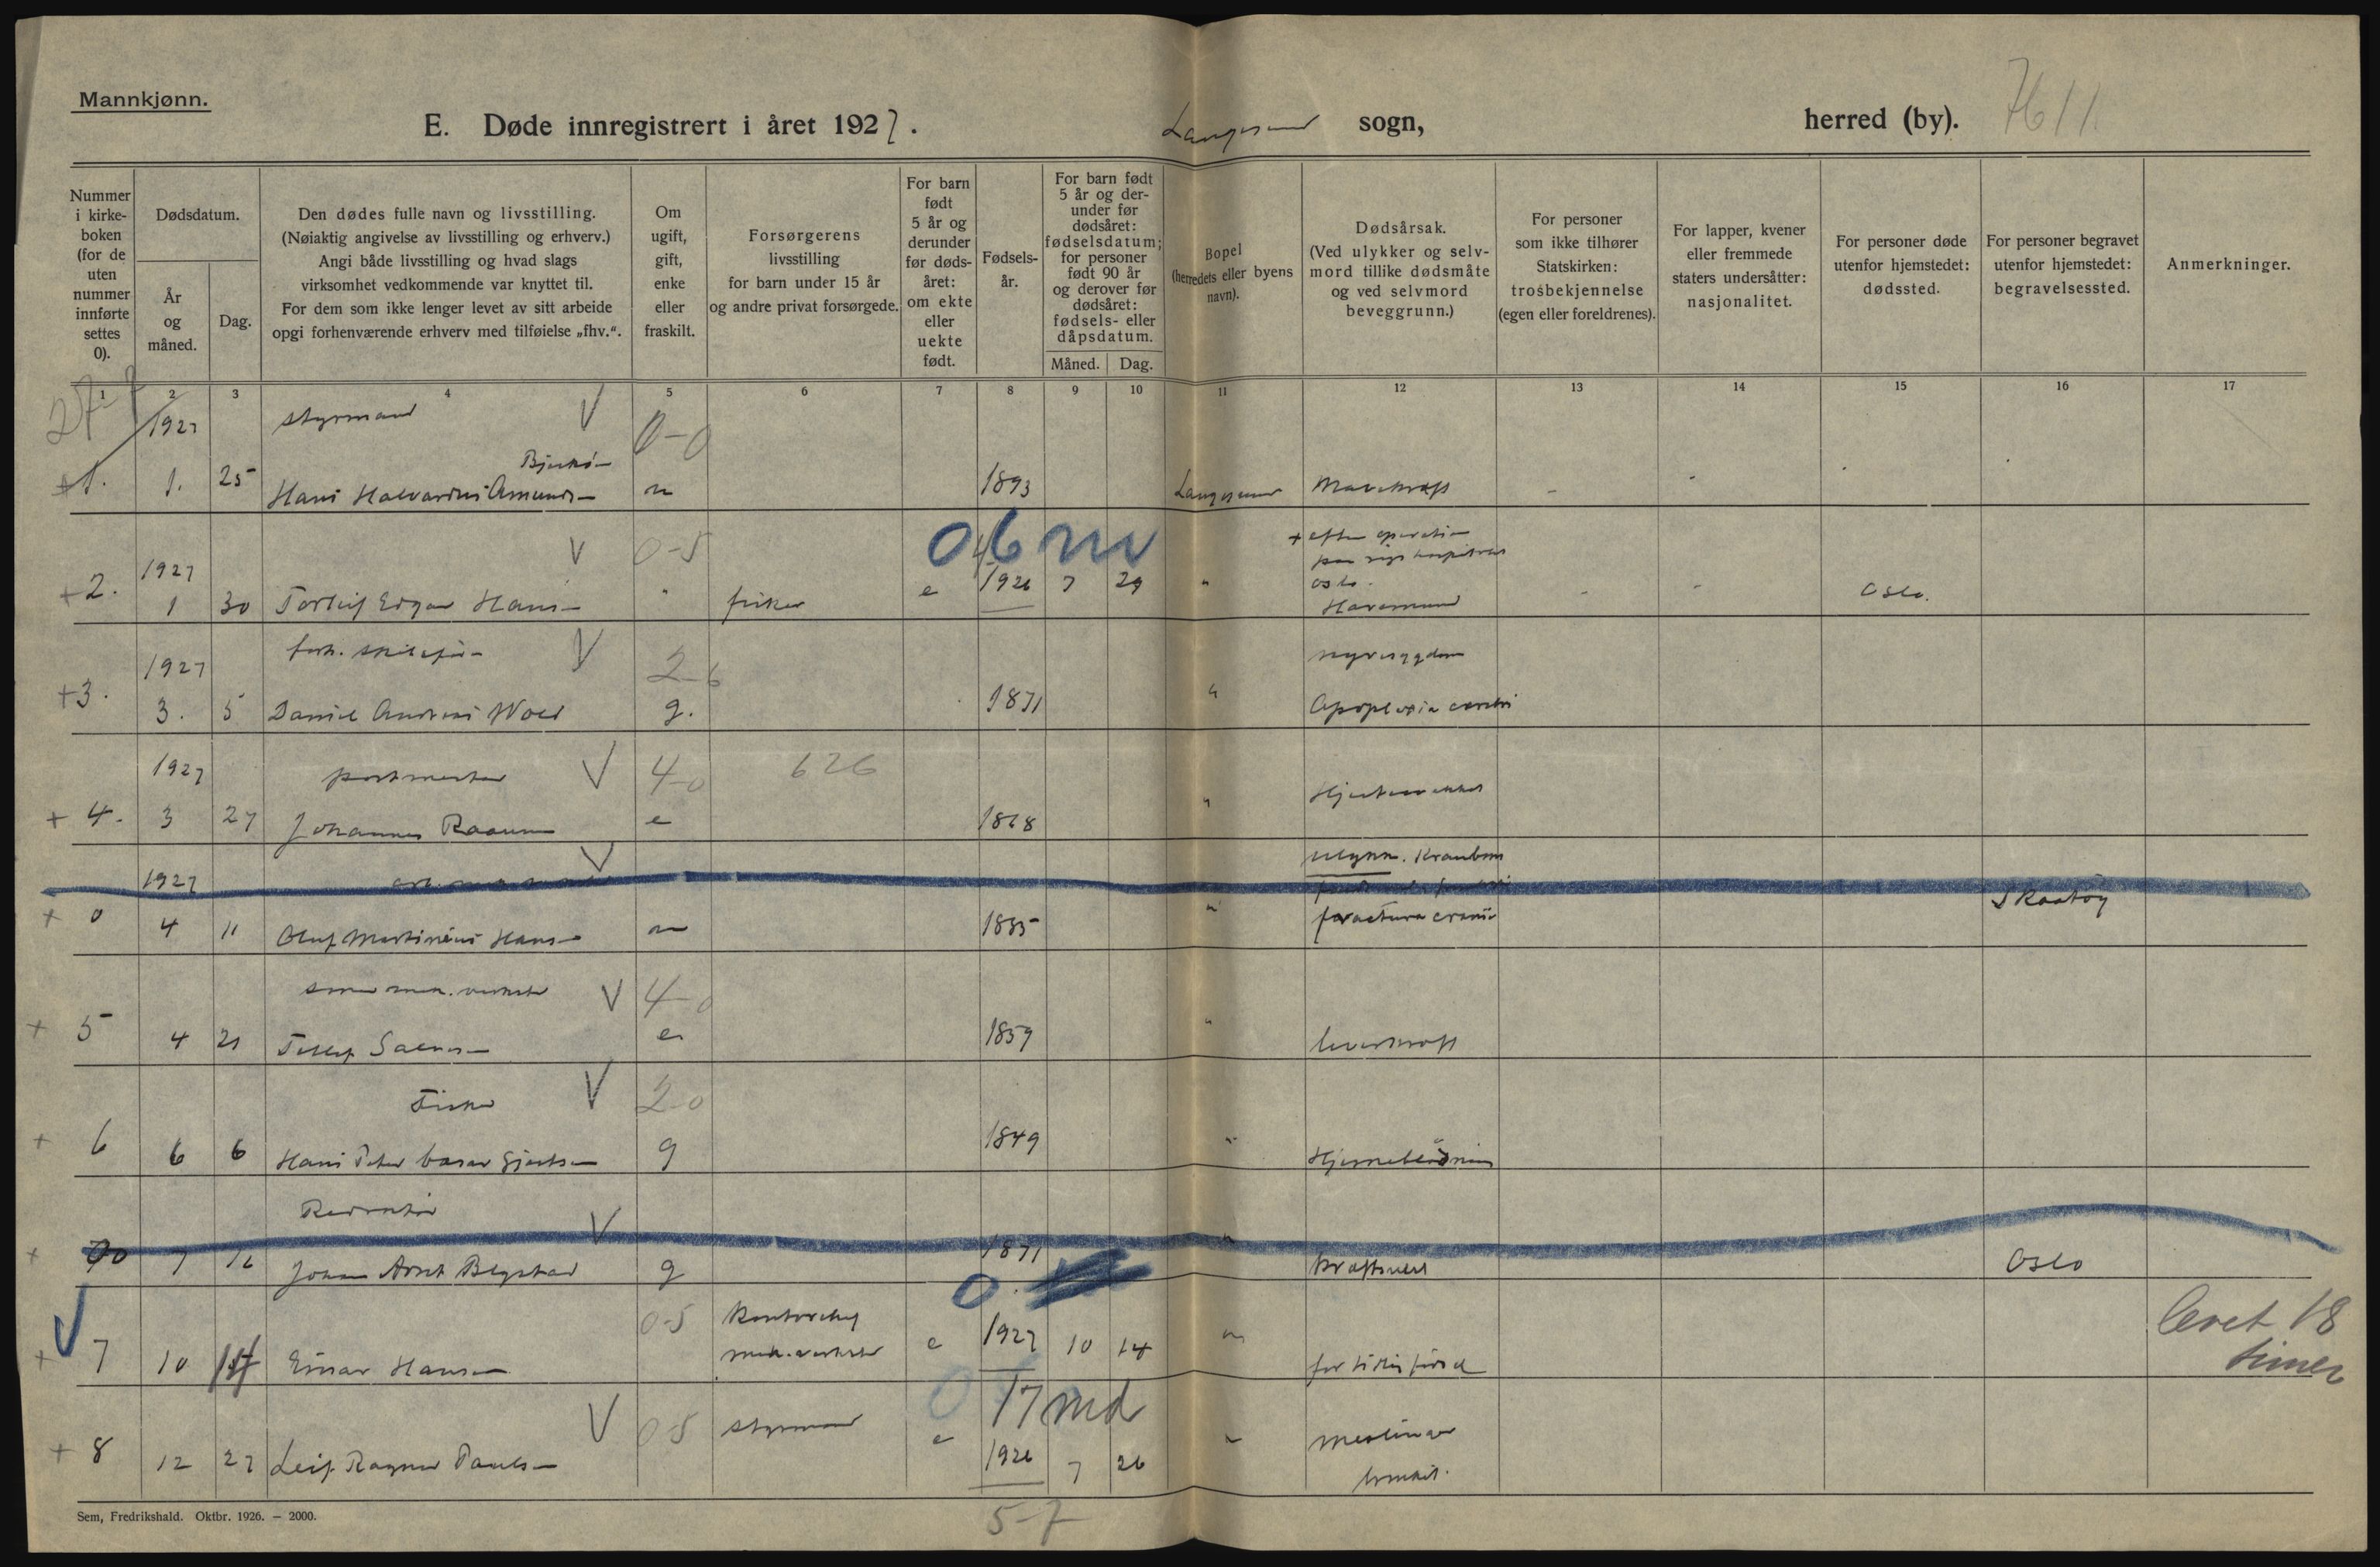 Mannkjønn.
E. Døde innregistrert i året 1927. Langesund sogn, herred (by). 7611
Nummer i kirkeboken (for de uten nummer innførte settes 0).
Dødsdatum.
År og måned.
Dag.
Den dødes fulle navn og livsstilling.
(Nøiaktig angivelse av livsstilling og erhverv.)
Angi både livsstilling og hvad slags
virksomhet vedkommende var knyttet til.
For dem som ikke lenger levet av sitt arbeide
opgi forhenværende erhverv med tilføielse „fhv.“.
Om ugift, gift, enke eller fraskilt.
Forsørgerens livsstilling for barn under 15 år og andre privat forsørgede.
For barn født 5 år og derunder før dødsåret: om ekte eller uekte født.
Fødselsår.
For barn født 5 år og derunder før dødsåret: fødselsdatum; for personer født 90 år og derover før dødsåret: fødsels- eller dåpsdatum.
Måned. Dag.
Bopel (herredets eller byens navn).
Dødsårsak.
(Ved ulykker og selvmord tillike dødsmåte og ved selvmord beveggrunn.)
For personer som ikke tilhører Statskirken: trosbekjennelse (egen eller foreldrenes).
For lapper, kvener eller fremmede staters undersåtter: nasjonalitet.
For personer døde utenfor hjemstedet: dødssted.
For personer begravet utenfor hjemstedet: begravelsessted.
Anmerkninger.
1 2 3 4 5 6 7 8 9 10 11 12 13 14 15 16 17
27
1927 styrmand V 0-0
1. 1. 25 Hans Halvardus Amunds- 1893 Langesund Mavekræft
06 m
+ efter operation
V 0-5
paa rigshospitalet
1927 Oslo.
+2. 1 30 Torleif Edgar Hans- " fisker e 1926 7 29 " Haremund Oslo.
1927 forh. V 2-6 nyresygdom
+3. 3. 5 Daniel Andreas Wold g. 1871 " Apoplexia cerebri
1927 postmester V 4-0 626
+ 4. 3 27 Johannes Raaum e 1868 "
V
1927
+ 0 4 11 Oluf Martinius Hans- 1885 " fractura cranii Skaatøy
mek. verksted V 4-0
+ 5 4 21 1859 " leverkræft
Fisker V 2-0
+ 6 6 6 Hans Peter g 1849 " Hjerneblødning
Redaktør V
+ 0 7 16 Johan g 1871 " Oslo
0
V 0-5 Kontorchef levet 18
+ 7 10 Einar Hansen mek. verksted e 1927 10 14 " for tidlig født timer
0 17 md
V 0-5 styrmand
+ 8 12 27 Leif Ragnar Pauls- e 1926 7 26 " Meslinger
bronkit.
5-7
Sem, Fredrikshald. Oktbr. 1926. — 2000.